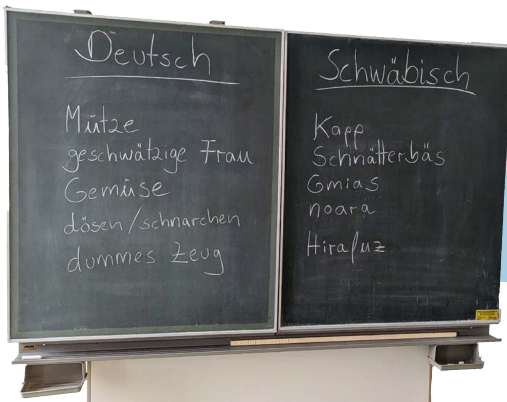 Deutsch
Mütze
geschwätzige Frau
Gemüse
dösen/schnarchen
dummes Zeug
Schwäbisch
Kapp
Schnätterbäs
Gmias
noara
Hirafuz